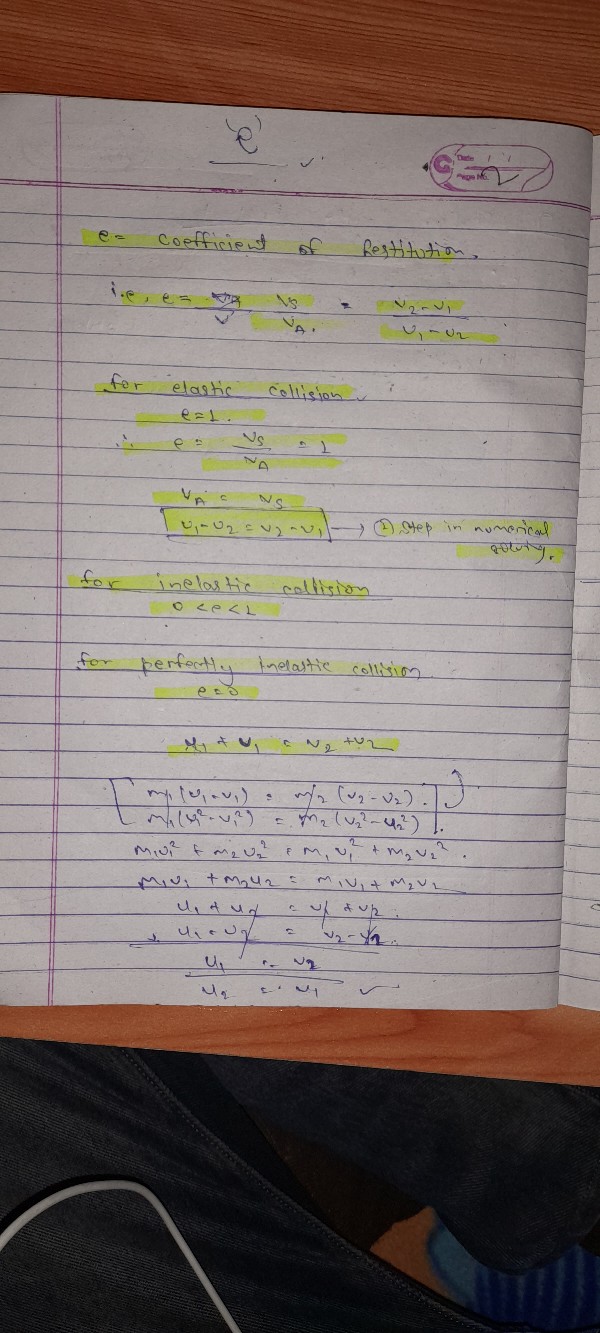 'e'
Date
Page No. 2
e = coefficient of Restitution.
i.e, e = vs/vA. = v2-v1/u1-u2
for elastic collision.
e=1.
∴ e = vs/vA = 1
vA = vs
u1-u2 = v2-v1 → 2) step in numerical
solving.
for inelastic collision
0<e<1
for perfectly inelastic collision
e=0
u1 + v1 = v2 + u2
m1(u1-v1) = m2(v2-u2).
m1(u1²-v1²) = m2(v2²-u2²).
m1u1² + m2u2² = m1v1² + m2v2².
m1u1 + m2u2 = m1v1 + m2v2
u1 + u2 = v1 + v2.
u1 - u2 = v2 - v1.
u1 = v2
u2 = v1